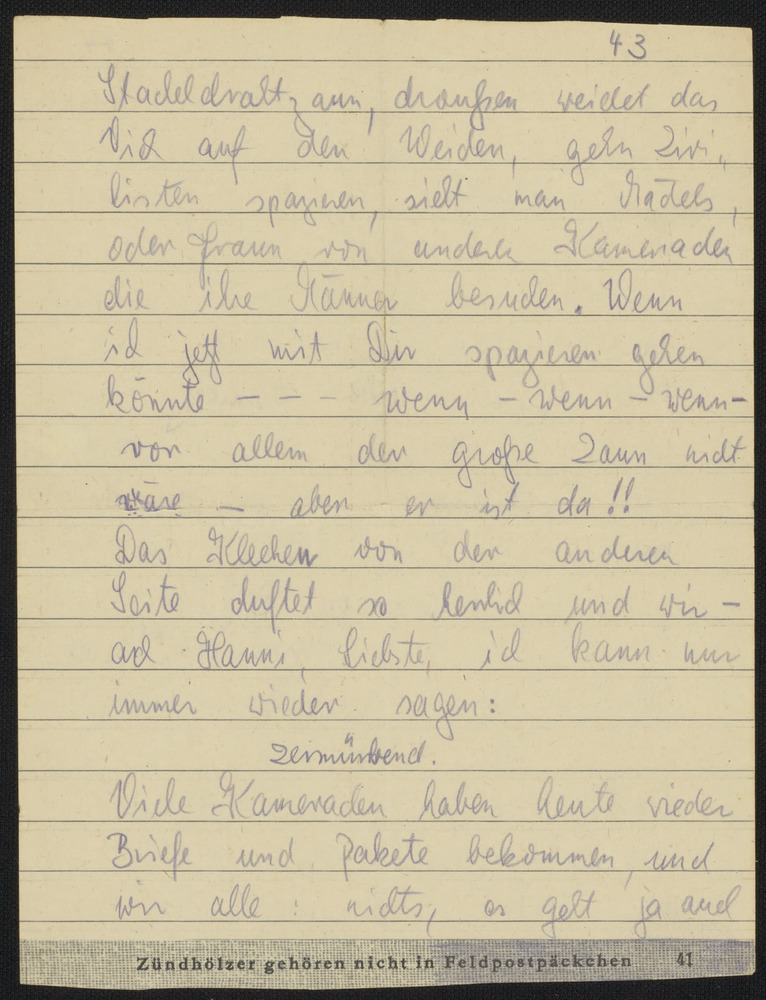 43
Stacheldrahtzaun, draußen weidet das
Vieh auf den Weiden, gehn Zivi„
listen spazieren, sieht man Mädels,
oder Fraun von andern Kameraden
die ihre Männer besuchen. Wenn
ich jetzt mit Dir spazieren gehen
könnte - - - wenn - wenn - wenn-
vor allem der große Zaun nicht
wäre - aber er ist da!!
Das Kleechen von der anderen
Seite duftet so herrlich und wir -
ach Hanni, Liebste, ich kann nur
immer wieder sagen:
zermürbend.
Viele Kameraden haben heute wieder
Briefe und Pakete bekommen, und
wir alle: nichts, es geht ja auch
Zündhölzer gehören nicht in Feldpostpäckchen 41